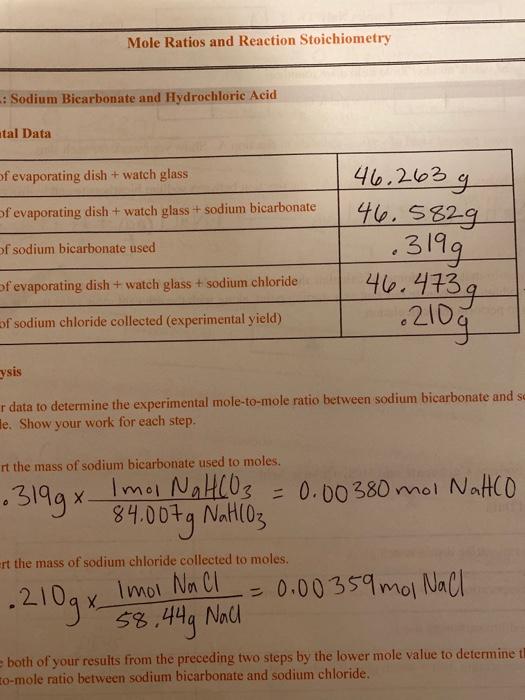 Mole Ratios and Reaction Stoichiometry
: Sodium Bicarbonate and Hydrochloric Acid
tal Data
of evaporating dish + watch glass 46.263 g
of evaporating dish + watch glass + sodium bicarbonate 46.582g
of sodium bicarbonate used .319g
of evaporating dish + watch glass + sodium chloride 46.473g
of sodium chloride collected (experimental yield) .210g
ysis
r data to determine the experimental mole-to-mole ratio between sodium bicarbonate and s
le. Show your work for each step.
rt the mass of sodium bicarbonate used to moles.
.319g x 1mol NaHCO3 = 0.00380 mol NaHCO
84.007g NaHCO3
rt the mass of sodium chloride collected to moles.
.210g x 1mol NaCl = 0.00359 mol NaCl
58.44g NaCl
both of your results from the preceding two steps by the lower mole value to determine t
to-mole ratio between sodium bicarbonate and sodium chloride.